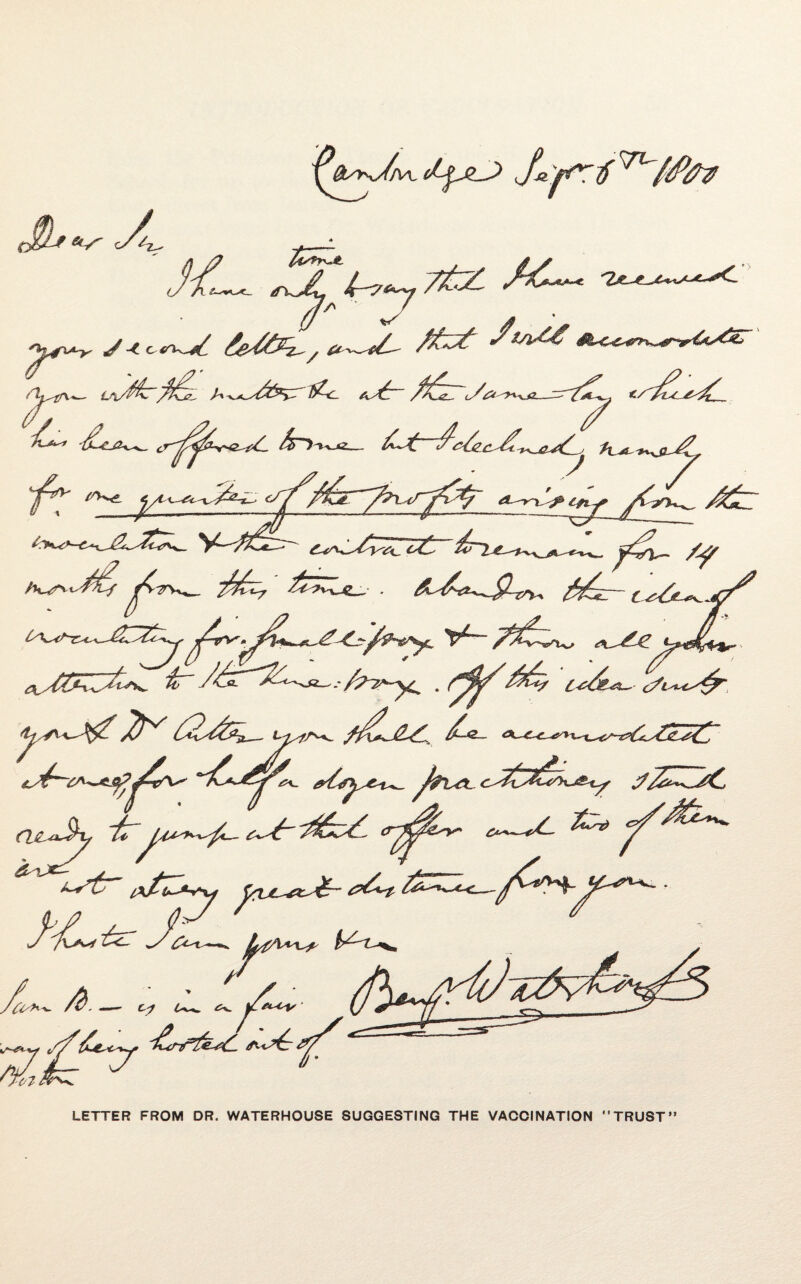 Cambridge Sepr. 6th 1800
Dear Sir,
time
I have only ^ to say that I have received
your second letter, and that I will accomodate
you with the matter &c at the same lay which
has been offered to me but I declined, namely
for one quarter of the profits arising from the
inoculation & the contract to remain for 14
months from this time. Abandon the idea of
inoculating for small-pox & throw all your
attention to the Kine-pox. If this idea suits
you & Dr Cutter you shall be accomodated
at once, for half a dozen practitioners stand
ready to jump at that offer and two of them
are
not at very great distance from you.
I haste I am yours &c
Benj. Waterhouse
Sam B. — is in a fair
way of being hosted out of
Boston
LETTER FROM DR. WATERHOUSE SUGGESTING THE VACCINATION "TRUST"